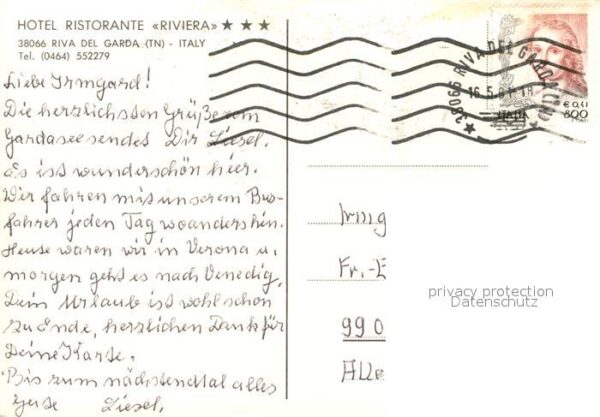 HOTEL RISTORANTE «RIVIERA» ★ ★ ★
38066 RIVA DEL GARDA (TN) - ITALY
Tel. (0464) 552279
Liebe Irmgard!
Die herzlichsten Grüße vom
Gardasee sendet Dir Liesel.
Es ist wunderschön hier.
Wir fahren mit unserem Bus-
fahrer jeden Tag woanders hin.
Heute waren wir in Verona u.
morgen geht es nach Venedig.
Dein Urlaub ist wohl schon
zu Ende, herzlichen Dank für
Deine Karte.
Bis zum nächstendtal alles
Gute Liesel.
38066 RIVA DEL GARDA (TN)
16.5.
ITALIA
€ 0,41
800
Irmg
Fr.-E
990
Alle
privacy protection
Datenschutz